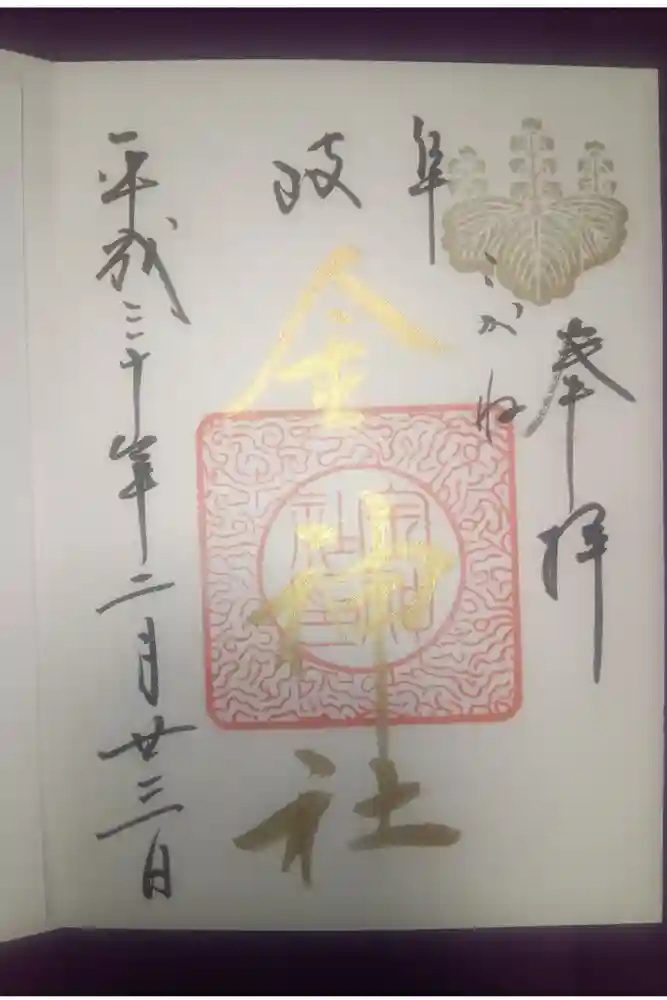 奉拝
こがね
岐阜
金神社
平成三十年二月廿三日